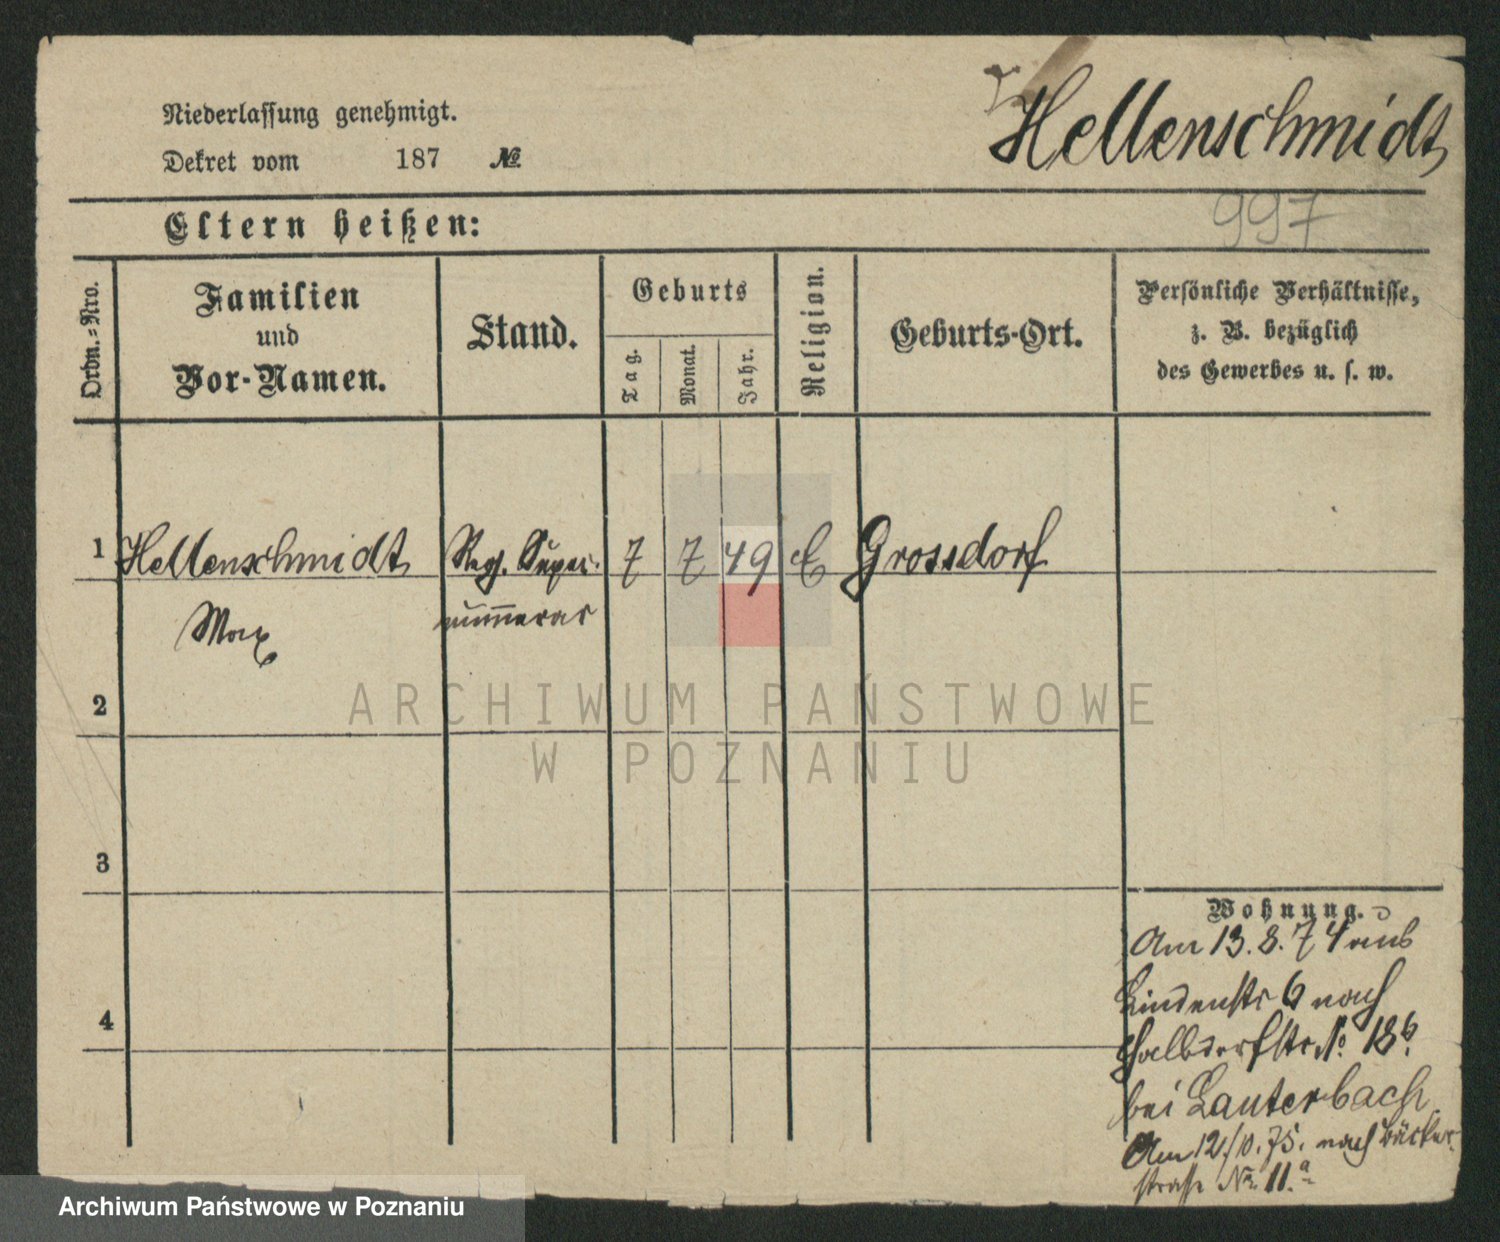 Hellenschmidt
Niederlassung genehmigt.
Dekret vom 187 №
997
Eltern heißen:
Ordn.-Nro.
Familien
und
Vor-Namen.
Stand.
Geburts
Tag.
Monat.
Jahr.
Religion.
Geburts-Ort.
Persönliche Verhältnisse,
z. B. bezüglich
des Gewerbes u. s. w.
1 Hellenschmidt Reg. Super- 7 7 49 E Grossdorf
Max numerar
2
ARCHIWUM PAŃSTWOWE
W POZNANIU
3
Wohnung.
Am 13.8.74 aus
Lindenstr 6 nach
4
Halbdorfstr. No. 18b.
bei Lauterbach
Am 12/10.75. nach Bäcker-
strasse No. 11.a
Archiwum Państwowe w Poznaniu